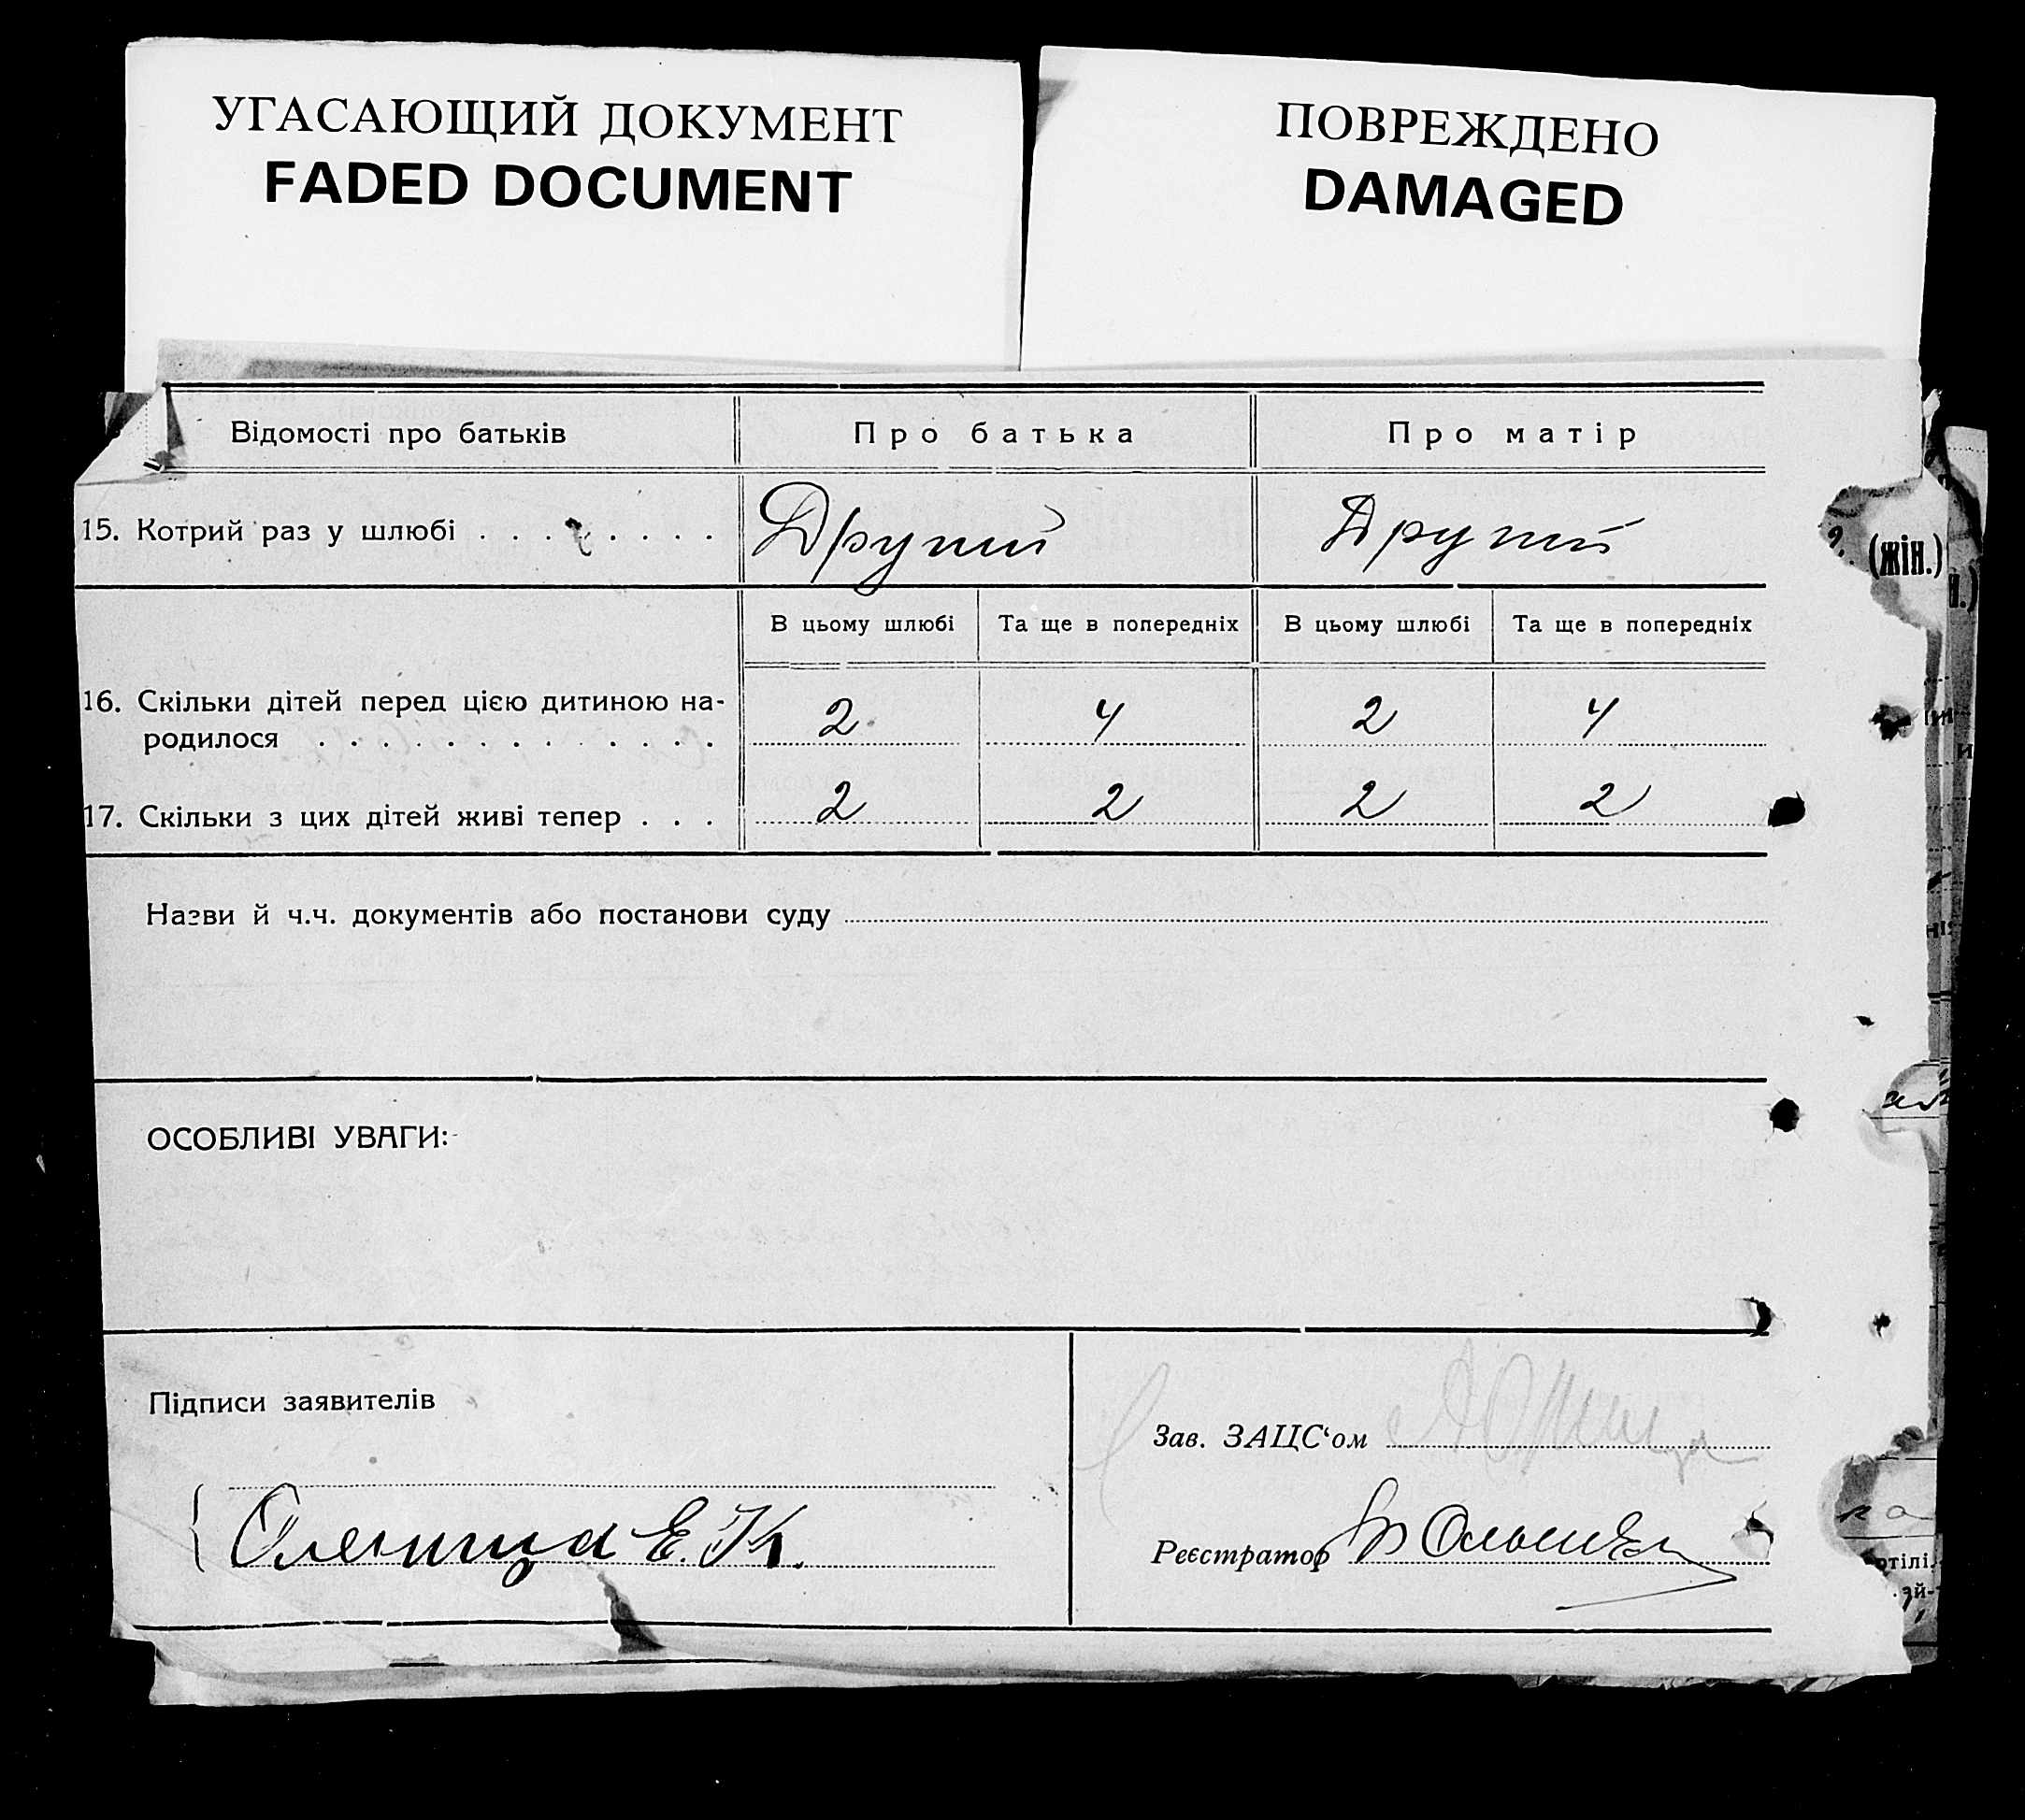 УГАСАЮЩИЙ ДОКУМЕНТ
FADED DOCUMENT
ПОВРЕЖДЕНО
DAMAGED
Відомості про батьків
Про батька
Про матір
15. Котрий раз у шлюбі . . . . . . . .
Другий
Другий
В цьому шлюбі
Та ще в попередніх
В цьому шлюбі
Та ще в попередніх
16. Скільки дітей перед цією дитиною на-
родилося . . . . . . . . . . . . .
2
4
2
4
17. Скільки з цих дітей живі тепер . . .
2
2
2
2
Назви й ч.ч. документів або постанови суду
ОСОБЛИВІ УВАГИ:
Підписи заявителів
Е. К.
Зав. ЗАЦС‘ом
Реєстратор
(жін.)